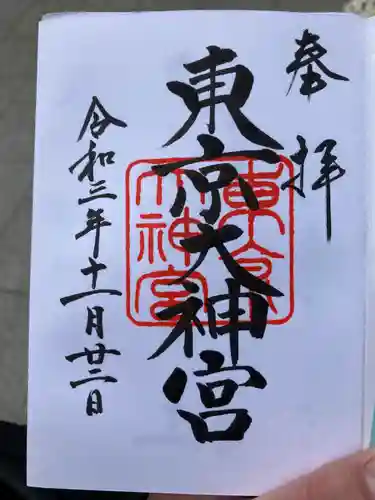 奉拝
東京大神宮
令和三年十一月廿二日
東京大神宮